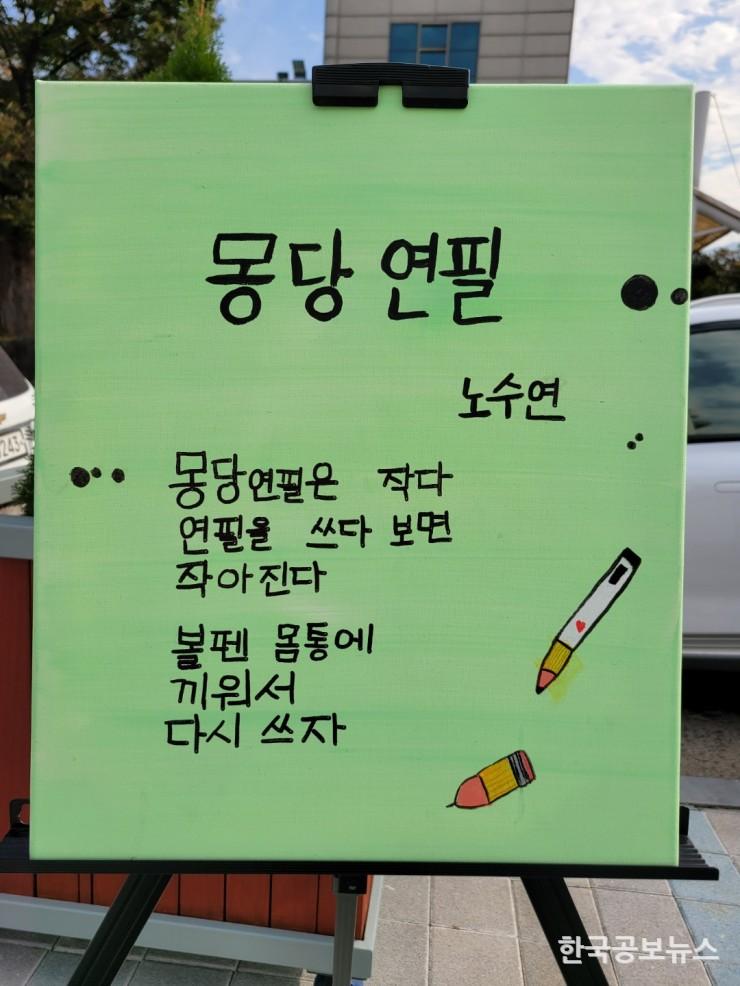 몽당 연필
노수연
몽당연필은 작다
연필을 쓰다 보면
작아진다
볼펜 몸통에
끼워서
다시 쓰자
243
한국공보뉴스